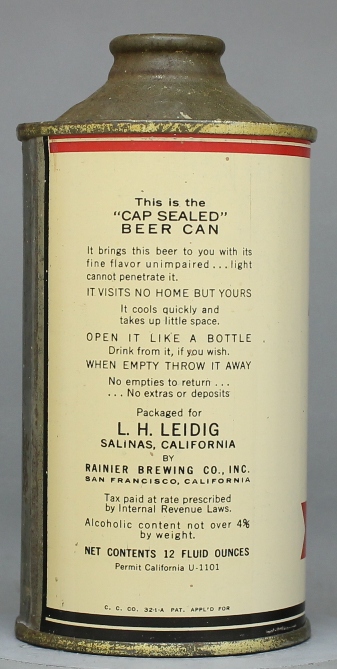 This is the
"CAP SEALED"
BEER CAN
It brings this beer to you with its
fine flavor unimpaired...light
cannot penetrate it.
IT VISITS NO HOME BUT YOURS
It cools quickly and
takes up little space.
OPEN IT LIKE A BOTTLE
Drink from it, if you wish.
WHEN EMPTY THROW IT AWAY
No empties to return...
...No extras or deposits
Packaged for
L. H. LEIDIG
SALINAS, CALIFORNIA
BY
RAINIER BREWING CO., INC.
SAN FRANCISCO, CALIFORNIA
Tax paid at rate prescribed
by Internal Revenue Laws.
Alcoholic content not over 4%
by weight.
NET CONTENTS 12 FLUID OUNCES
Permit California U-1101
C. C. CO. 32-1-A PAT. APPL'D FOR